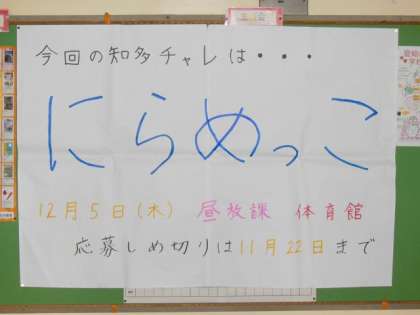 今回の知多チャレは・・・
にらめっこ
12月5日(木) 昼放課 体育館
応募しめ切りは11月22日まで